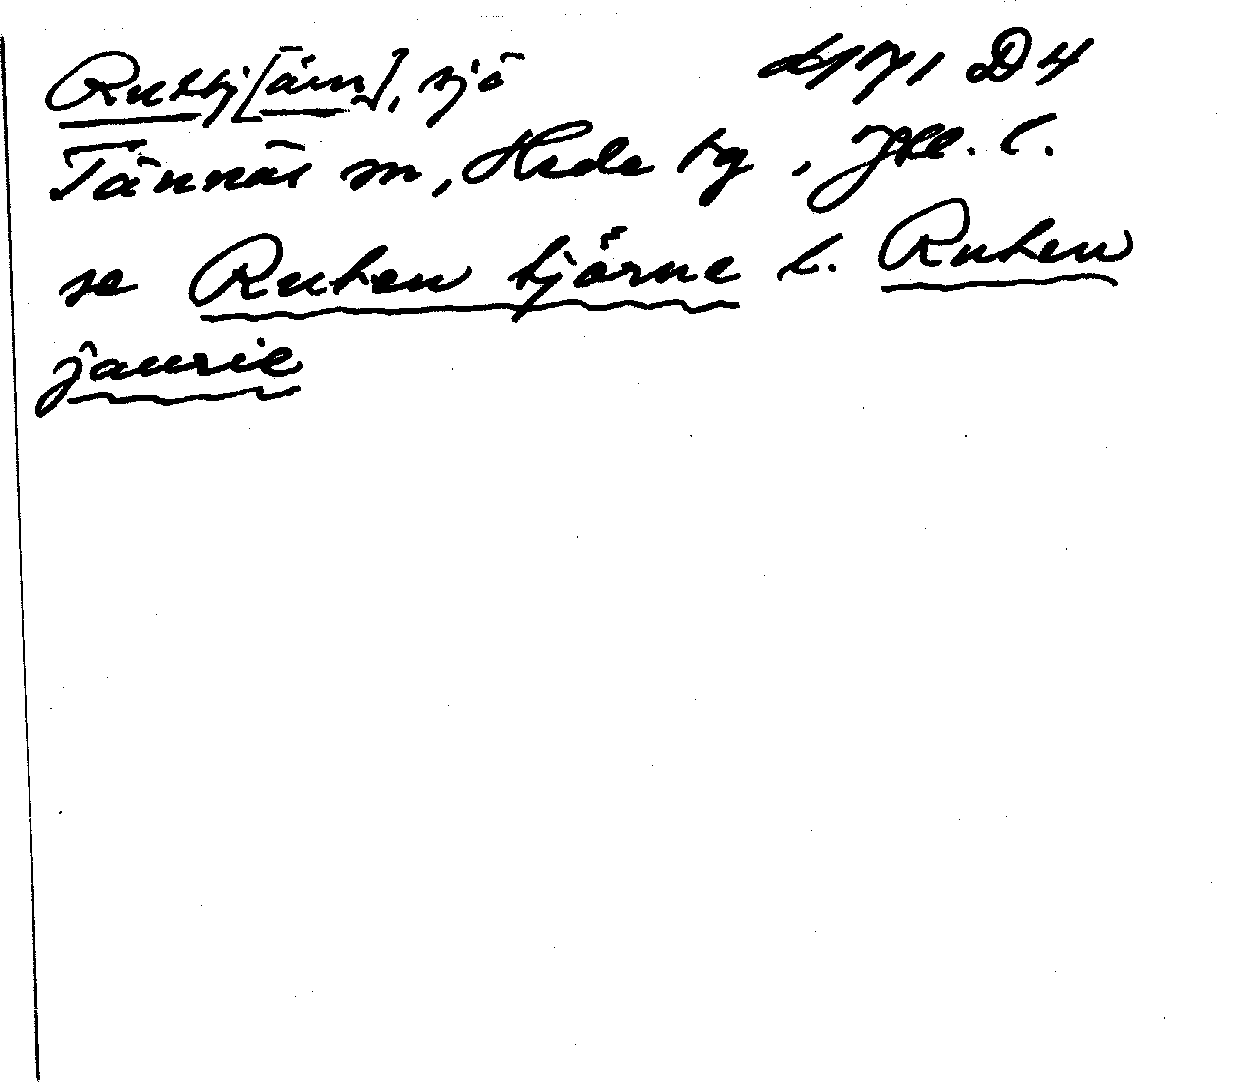 Ruttj[ärn], sjö 171 D4
Tännäs sn, Hede tg, Jtl. l.
se Ruten tjärne l. Ruten
jaurie